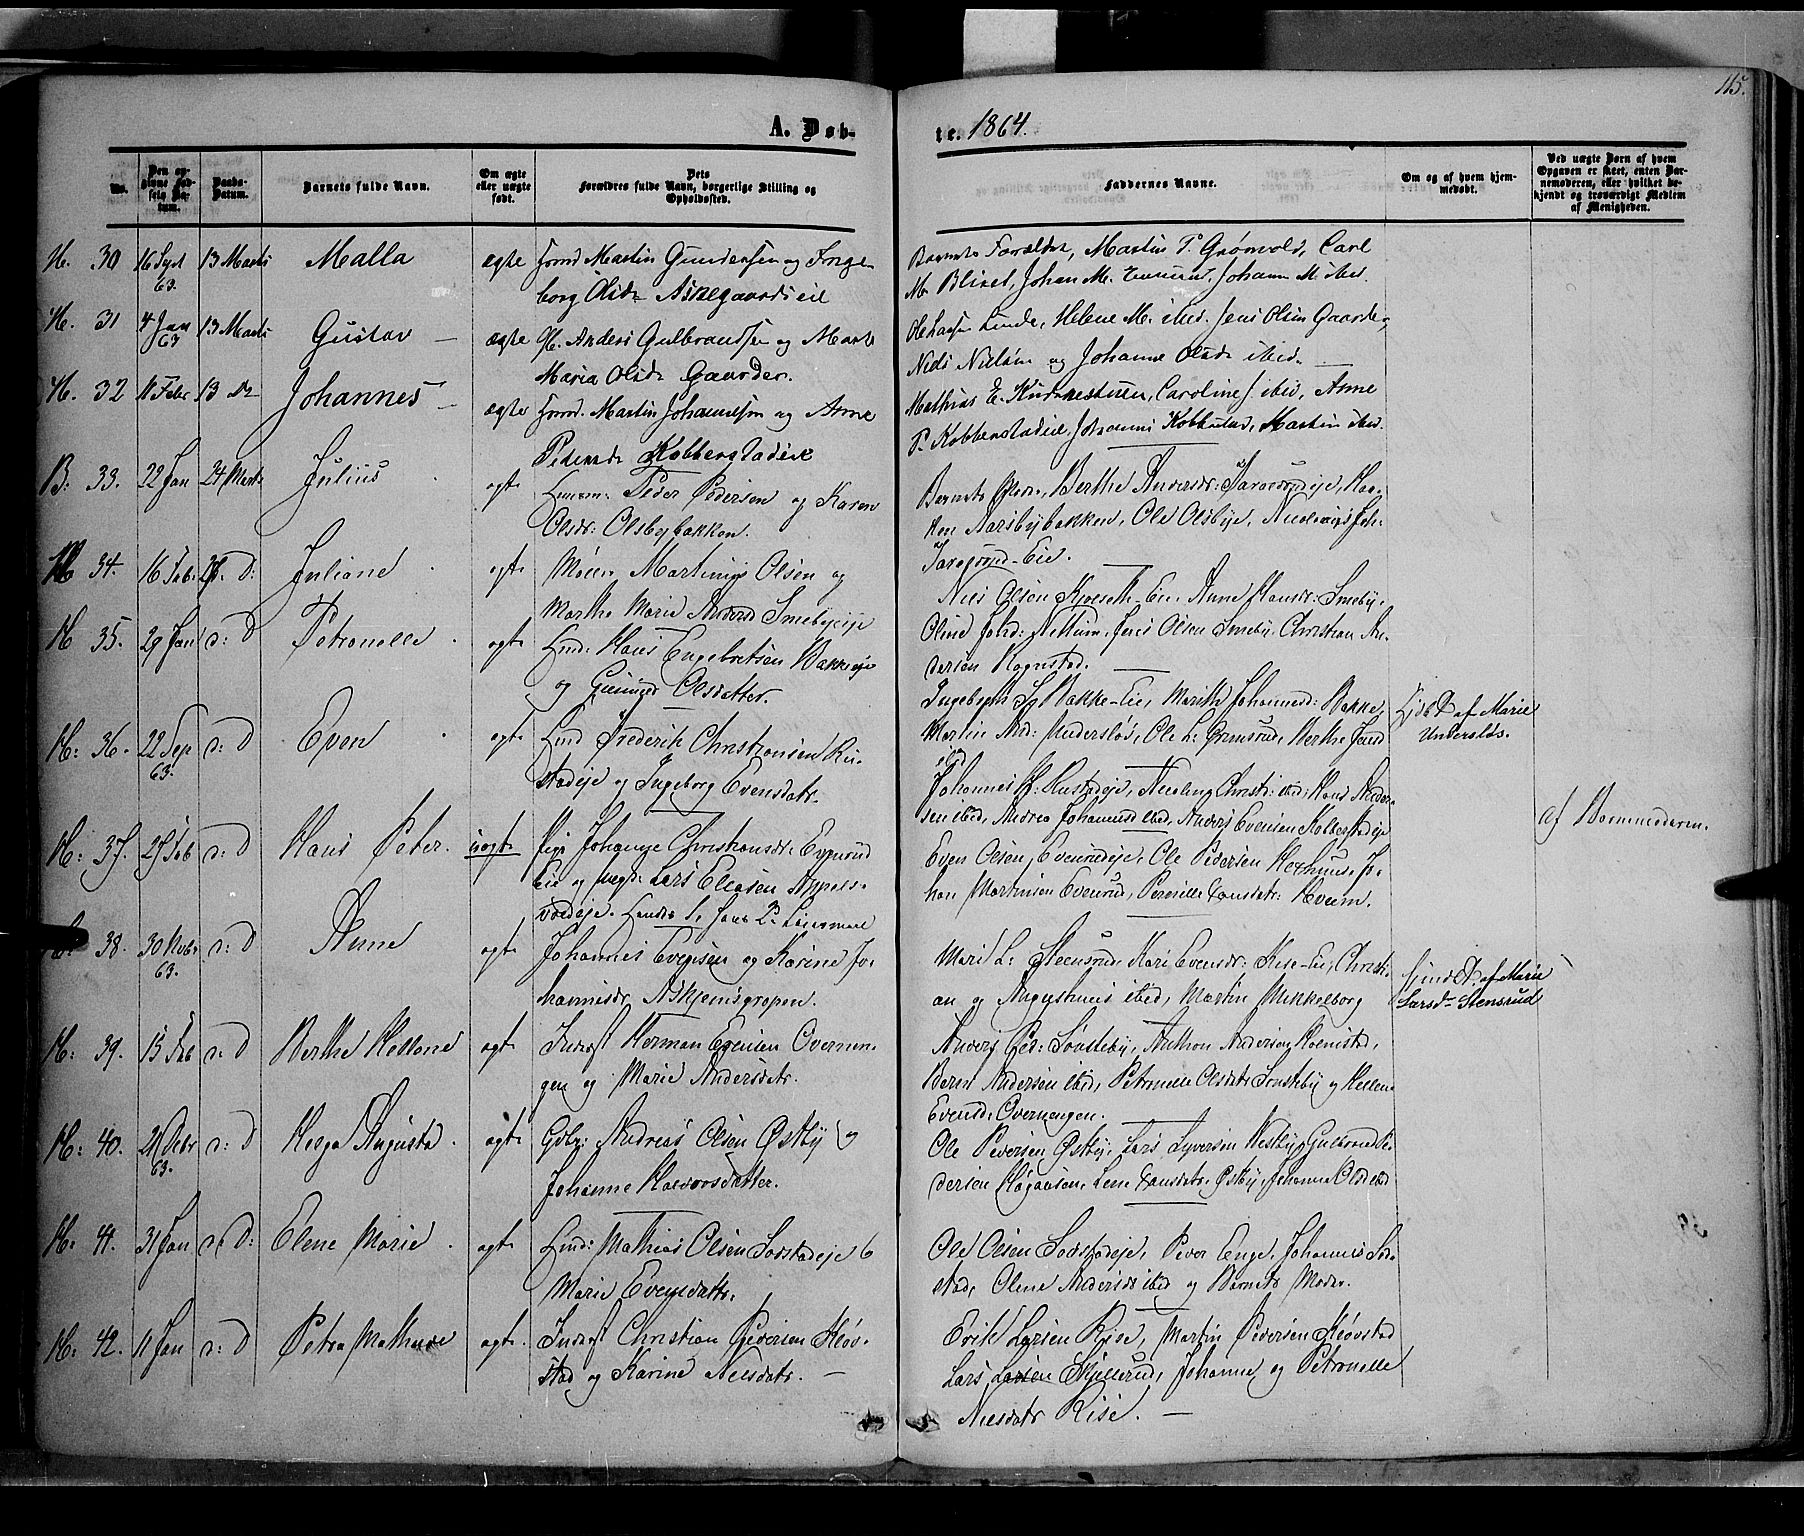 115.
A. Døb- te. 1864.
No.
Den opgivne Fødsels Datum.
Daabs-Datum.
Barnets fulde Navn.
Om ægte eller uægte født.
Dets Forældres fulde Navn, borgerlige Stilling og Opholdssted.
Faddernes Navne.
Om og af hvem hjemmedøbt.
Ved uægte Børn af hvem Opgaven er skeet, enten Barnemoderen, eller hvilket bekjendt og troværdigt Medlem af Menigheden.
H. 30 16 Sept 63. 13 Marts Malla ægte Martin Gundersen og Inge-
borg Olsdr Askegaardseie
Barnets Forældre, Martin P. Grønvold, Carl
M. Blixet, Johan M. Johanne M ibid.
H. 31 4 Jan 63 13 Marts Gustav — ægte H. Anders Gulbrandsen og Marte
Maria Olsdr Gaarder.
Ole Larsen Linde, Helene M. ibid. Jens Olsen Gaarder,
Nels Nielsen og Johanne Olsdr ibid. —
H. 32 11 Febr 13 Do Johannes — ægte Martin Johannesen og Anne
Pedersdr Kobberstadeie
Mathias E. Caroline J. ibid, Anne
P. Kobberstadeie, Johannes Kobberstad, Martin ibid.
B: 33. 22 Jan 24 Marts Julius . ægte Peder Pedersen og Karen
Olsdr: Olsbybakken.
Barnets Berthe Andersdr:
Aarsbybakken, Ole Olsbye,
34. 16 Feb: d: Juliane . ægte Martinus Olsen og
Marthe Marie Andersd Smebyeie
Niels Olsen Kjoseth-Eie. Anne Hansdr: Smeby,
Oline Johd: Nettum, Jens Olsen Smeby, Christian An-
dersen Rognstad.
H 35. 29 Jan d: D Petronelle . ægte Ind: Hans Engebretsen Bakkeeie
og Gunild Olsdatter.
Ingebreth Bakke-Eie, Marith Johannesd: Bakke,
Martin And: Undersløs, Ole L: Grimsrud, Berthe
Hjd: D af Marie
Undersløs.
H: 36. 22 Sep 63. d: D Even . ægte Ind Frederik Christiansen Ru-
stadeie og Ingeborg Evensdatr.
Johannes H: Rustadeie, Christ: ibid: Hans Ander-
sen ibid, Andrea Johannesd ibid, Anders Evensen Kolberstadeie
H: 37. 27 Feb d: D Hans Peter. uægte Pige Johanne Christiansdr: Evensrud
Eie og Ungk: Lars Eliasen Appels-
voldeie.
Even Olsen, Evensrudeie, Ole Pedersen Hexhuus, Jo-
han Martinsen Evensrud, Pernille Hansdatr: Hveem.
af Barnemoderen.
38. 30 Novbr 63. d: D Anne ægte Johannes Evensen og Karine Jo-
hannesdr Askjemsgropen.
Mari L: Steensrud, Kari Evensdr: Kise-Eie, Christi-
an og Augustinus ibid, Martin Mikkelborg
Hjmd D. af Marie
Larsdr Stensrud
H: 39. 15 Feb d: D Berthe Hellene ægte Inderst Herman Evensen Overnen-
gen og Marie Andersdatr.
Anders Ped: Sønsteby, Anthon Andersen Hoenstad,
Bernt Andersen ibid, Petronelle Olsdatr Sønsteby og Hellene
Evensd: Overnengen.
H: 40. 21 Debr 63. d: D Helga Augusta. ægte Gdbr: Andreas Olsen Østby og
Johanne Halvorsdatter.
Ole Pedersen Østby, Lars Syversen Vestby, Gulbrand Pe-
dersen Høgaasen, Lene Hansdatr Østby, Johanne Olsd ibid
H: 41. 31 Jan d: D: Elene Marie . ægte Ind: Mathias Olsen Sørstadeie &
Marie Evensdatr.
Ole Olsen Sørstadeie, Peder Enge, Johannes Sør-
stad, Olene Andersdr ibid og Barnets Moder.
H: 42. 11 Jan d: D Petra Mathea ægte Inderst Christian Pedersen Kløv-
stad og Karine Nielsdatr. —
Erik Larsen Kise, Martin Pedersen Kløvstad
Lars Larsen Skjellerud, Johanne og Petronelle
Nielsdatr Kise. —